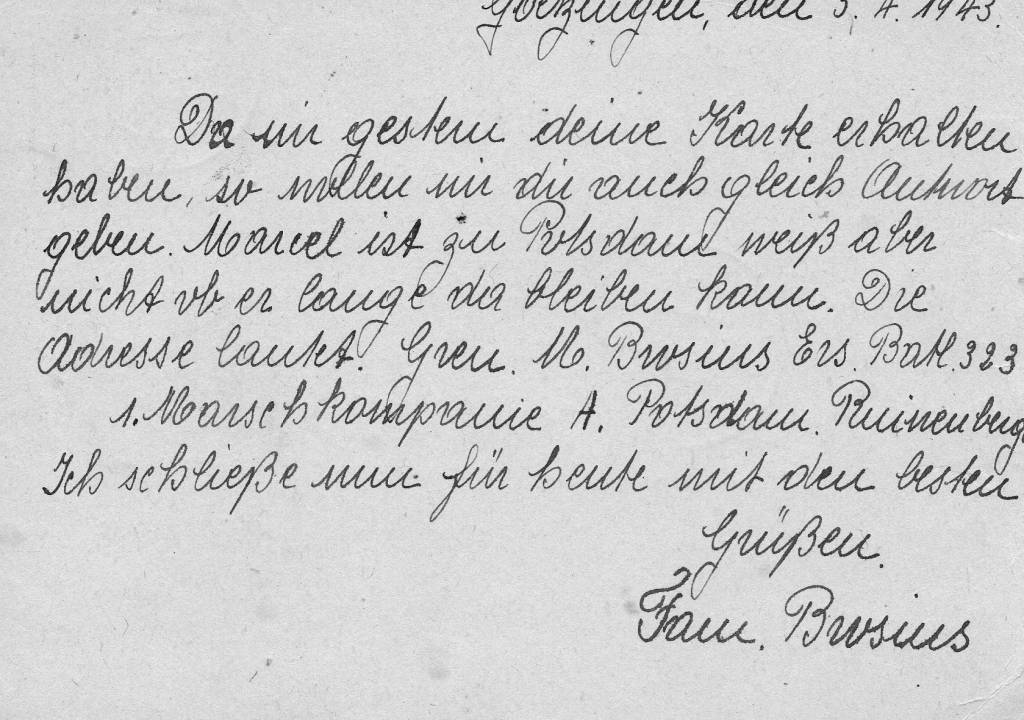 Goetzingen, den 5. 4. 1943.
Da wir gestern deine Karte erhalten
haben, so wollen wir dir auch gleich Antwort
geben. Marcel ist zu Potsdam weiß aber
nicht ob er lange da bleiben kann. Die
Adresse lautet. Gren. M. Brosius Ers. Batl. 323
1. Marschkompanie A. Potsdam. Ruinenberg
Ich schließe nun für heute mit den besten
Grüßen.
Fam. Brosius